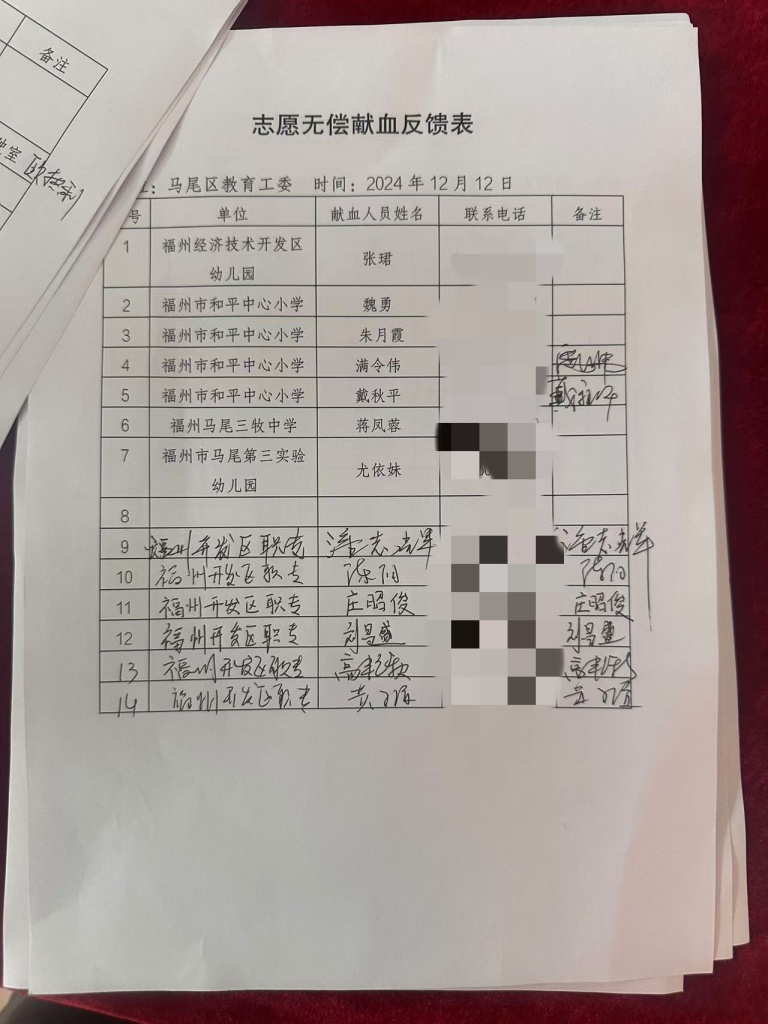 备注
志愿无偿献血反馈表
:马尾区教育工委 时间:2024年12月12日
号 单位 献血人员姓名 联系电话 备注
1 福州经济技术开发区幼儿园 张珺
2 福州市和平中心小学 魏勇
3 福州市和平中心小学 朱月霞
4 福州市和平中心小学 满令伟
5 福州市和平中心小学 戴秋平 戴秋平
6 福州马尾三牧中学 蒋凤蓉
7 福州市马尾第三实验幼儿园 尤依妹
8
9 福州开发区职专
10 福州开发区职专 陈阳 陈阳
11 福州开发区职专 庄昭俊 庄昭俊
12 福州开发区职专 刘昌盛 刘昌盛
13 福州开发区职专
14 福州开发区职专